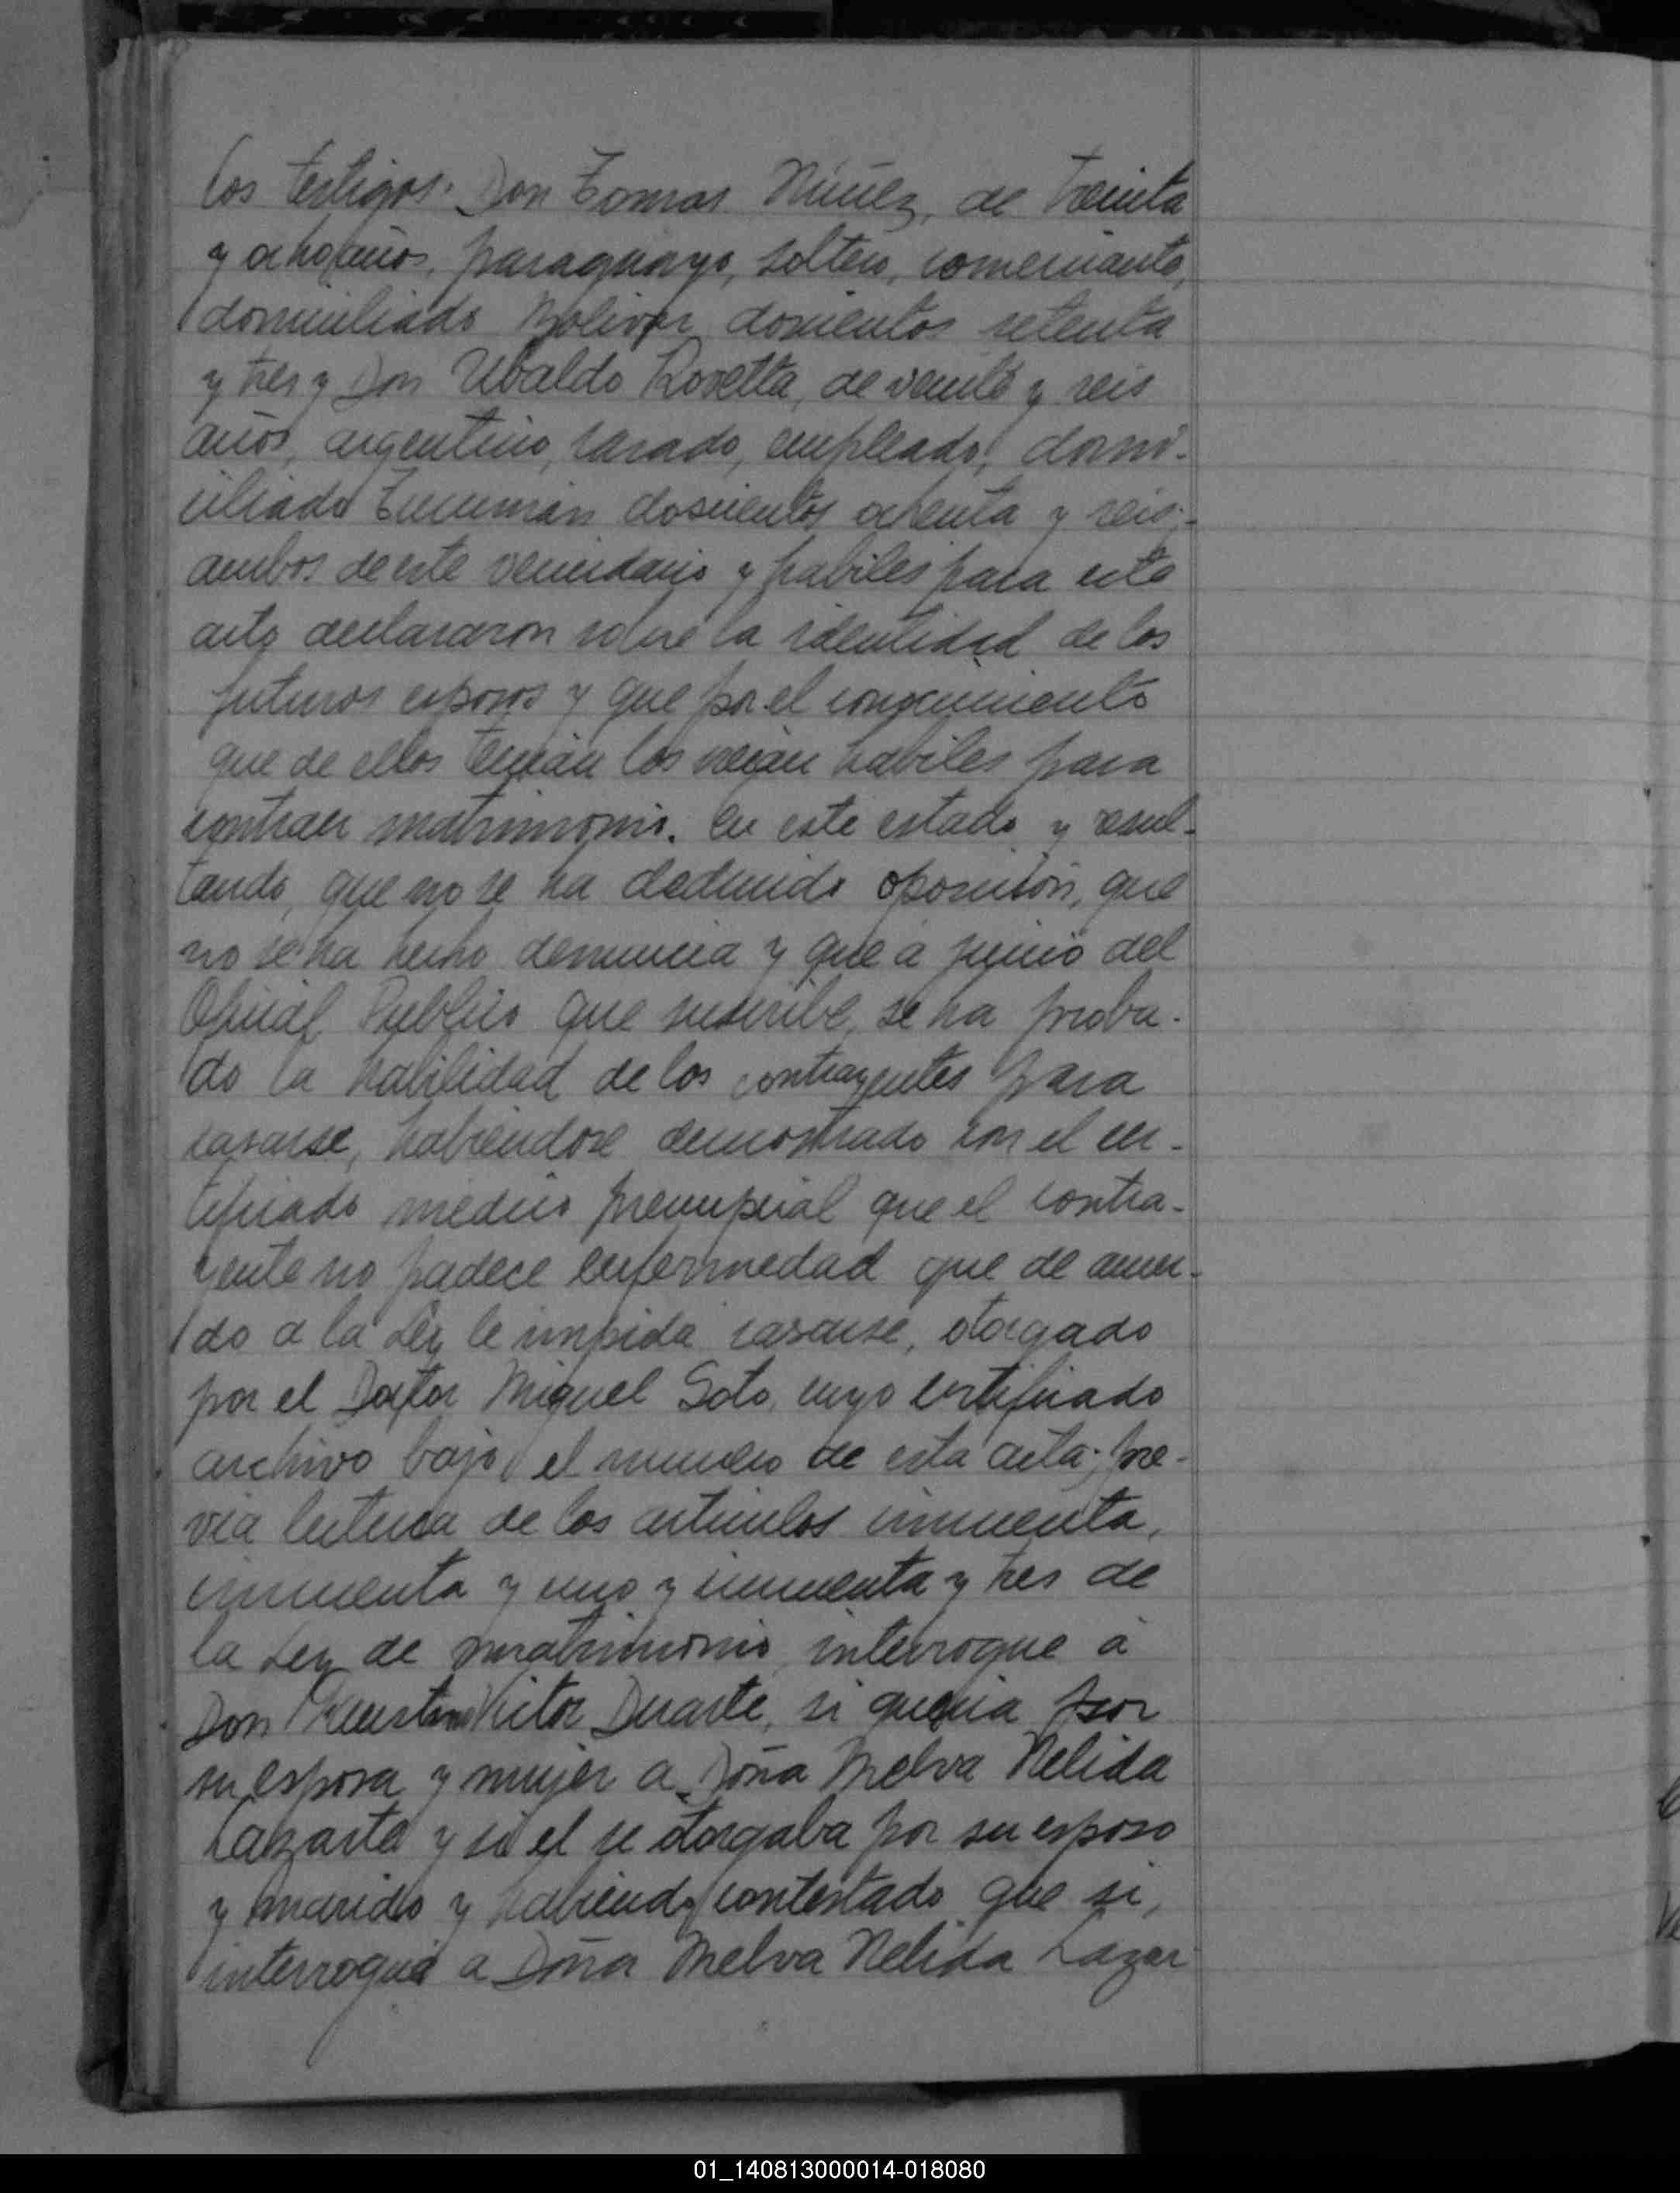 los testigos: Don Tomas Núñez, de treinta
y ocho años, paraguayo, soltero, comerciante,
domiciliado Bolivar doscientos setenta
y tres y Don Ubaldo Rosetta, de veinte y seis
años, argentino, casado, empleado, domi-
ciliado Tucumán doscientos ochenta y seis;-
ambos de este vecindario y habiles para este
acto declararon sobre la identidad de los
futuros esposos y que por el conocimiento
que de ellos tenían los creían habiles para
contraer matrimonio. En este estado y resul-
tando, que no se ha deducido oposición, que
no se ha hecho denuncia y que a juicio del
Oficial Publico que suscribe, se ha proba-
do la habilidad de los contrayentes para
casarse, habiendose demostrado con el cer-
tificado medico prenupcial que el contra-
yente no padece enfermedad que de acuer-
do a la Ley le impida casarse, otorgado
por el Doctor Miguel Soto, cuyo certificado
archivo bajo el numero de esta acta; pre-
via lectura de los articulos cincuenta,
cincuenta y uno y cincuenta y tres de
la Ley de matrimonio, interrogue á
Don Vitor Duarte, si queria por
su esposa y mujer a Doña Melva Nelida
Lazarte y si el se otorgaba por su esposo
y marido y habiendo contestado que si,
interrogué a Doña Melva Nelida Lazar
01_140813000014-018080